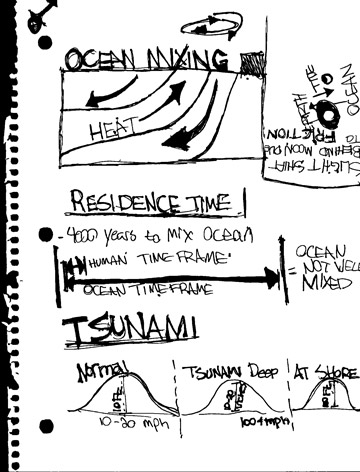 OCEAN MIXING
HEAT
SLIGHT SHIFT
BEHIND MOON DUE
TO
FRICTION
OCEAN
RESIDENCE TIME
- 4000 years to mix Ocean
HUMAN TIME FRAME
OCEAN TIME FRAME
= OCEAN
NOT WELL
MIXED
TSUNAMI
Normal
10 FT
10-20 mph
TSUNAMI Deep
100+ mph
AT SHORE